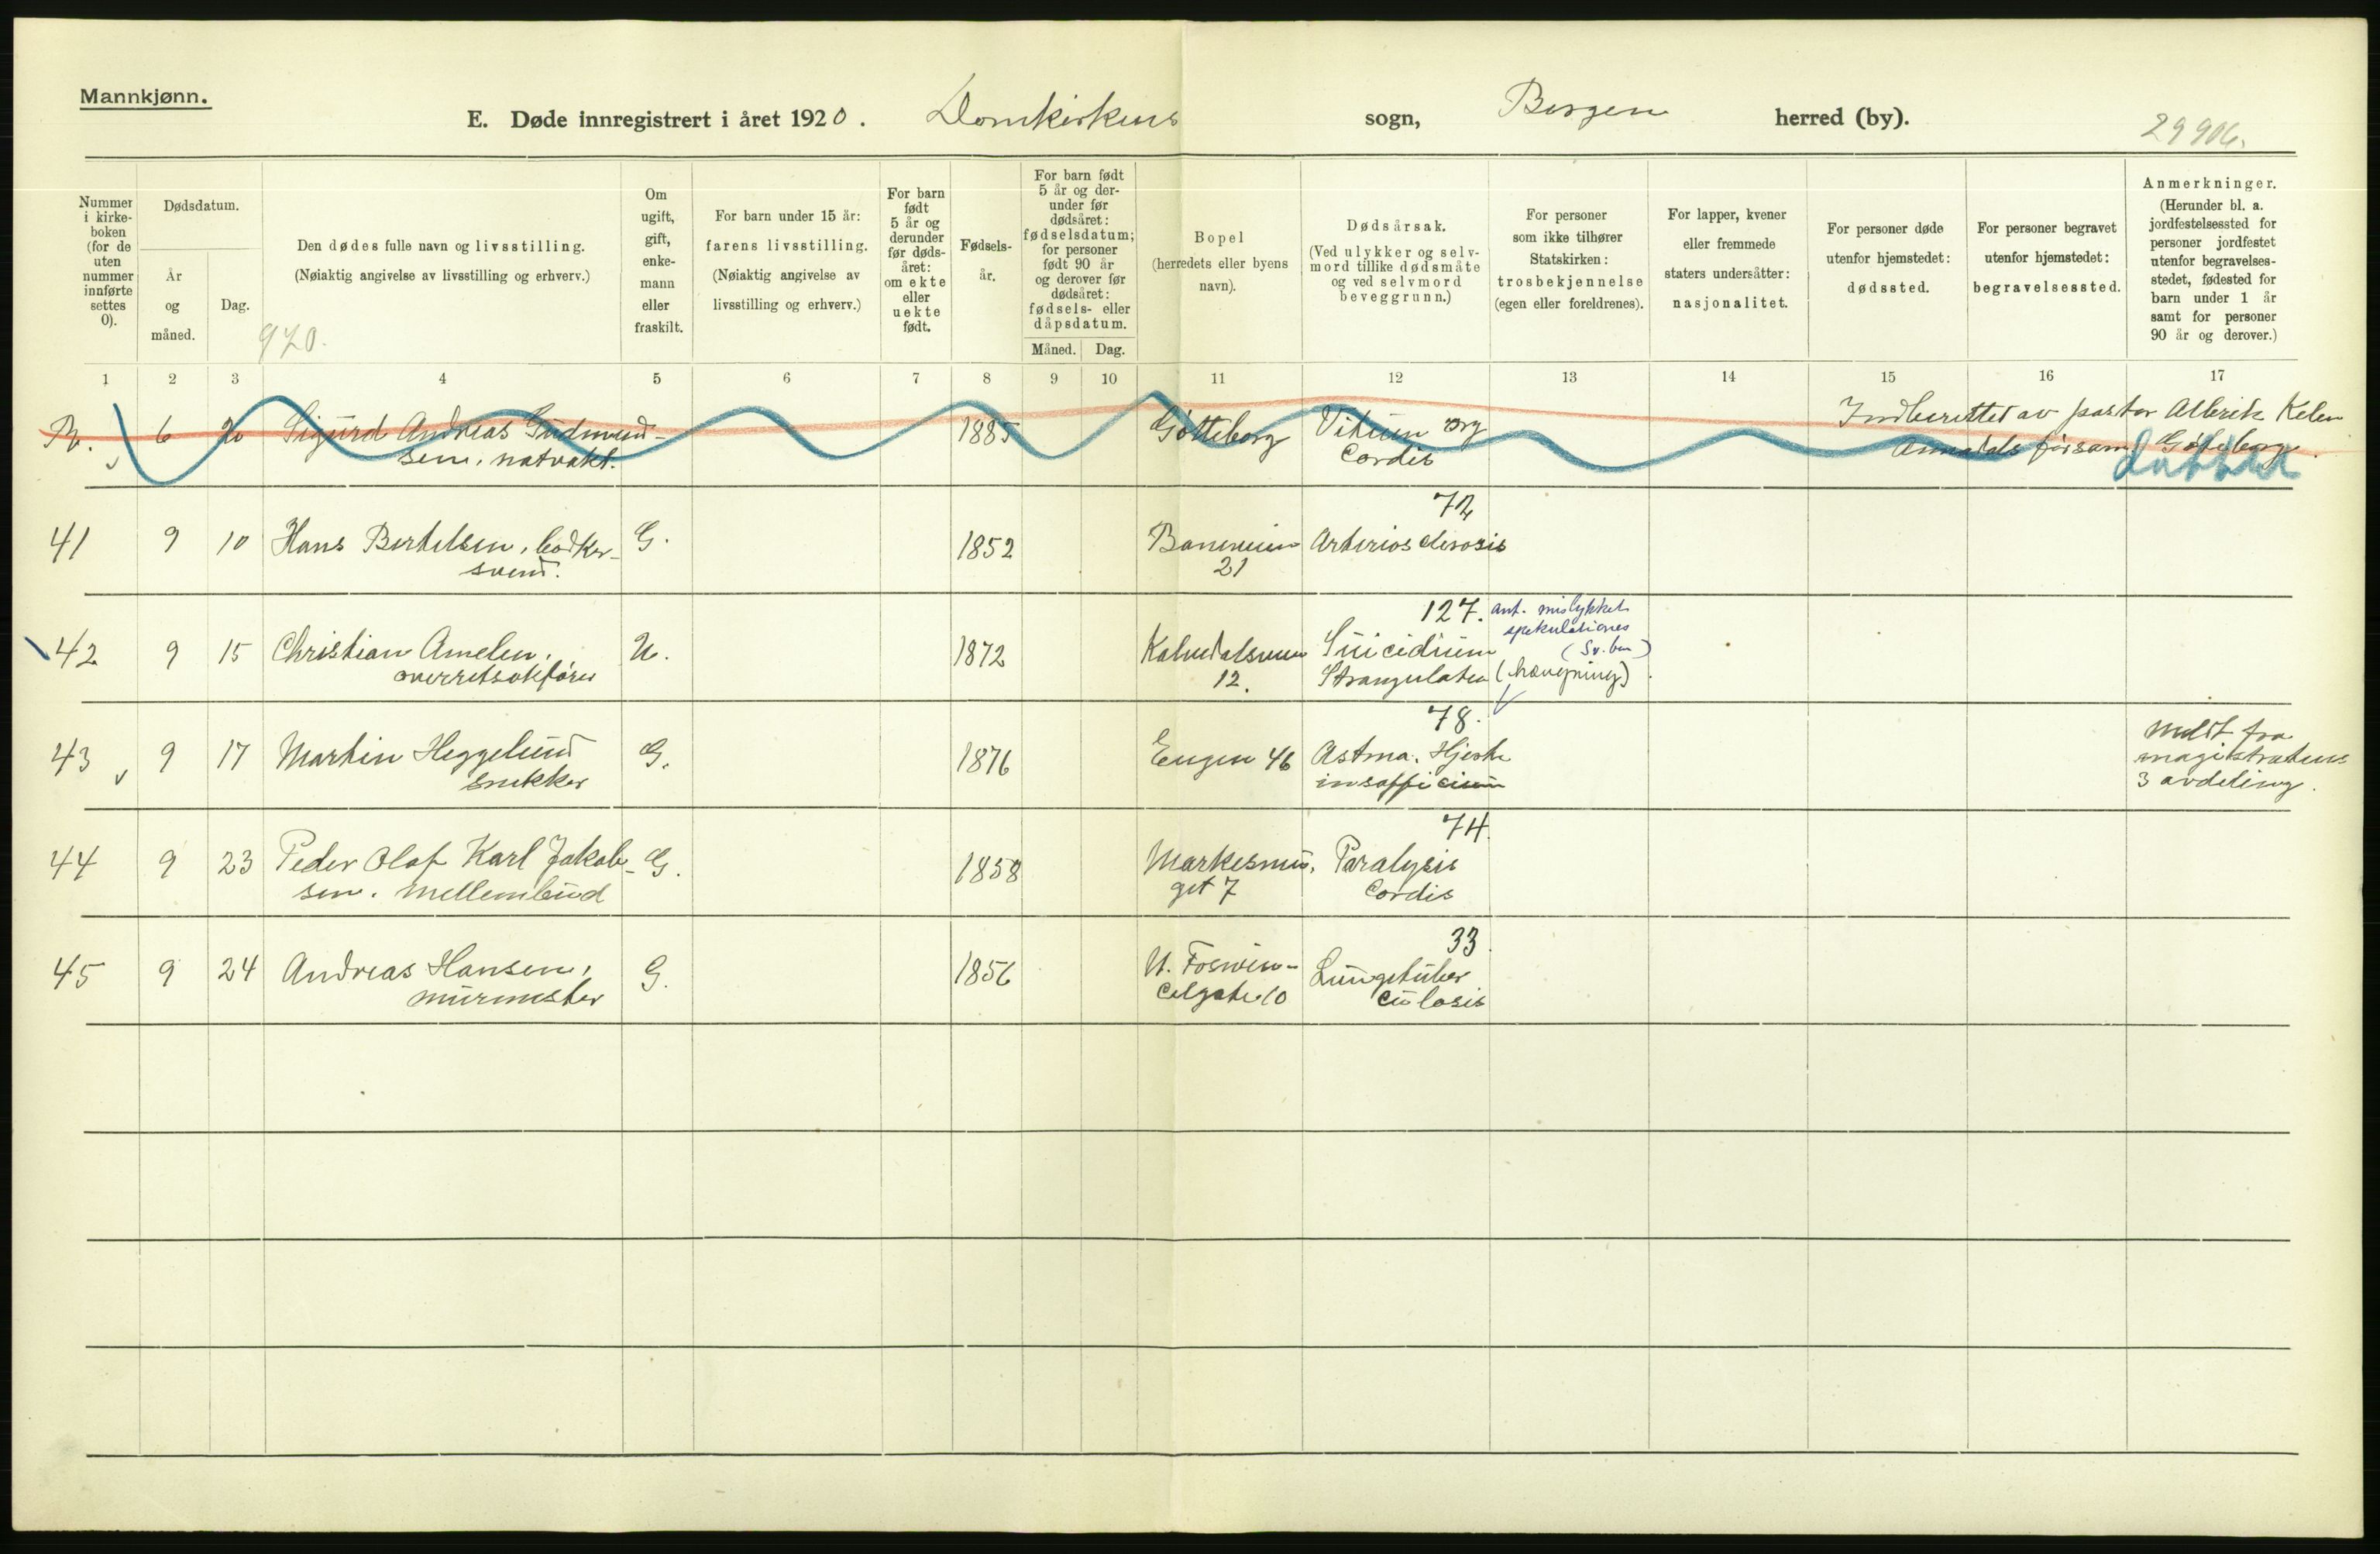 Mannkjønn.
E. Døde innregistrert i året 1920. Domkirkens sogn, Bergen herred (by).
29906.
Nummer i kirke- boken (for de uten nummer innførte settes 0).
Dødsdatum.
År og måned.
Dag.
Den dødes fulle navn og livsstilling.
(Nøiaktig angivelse av livsstilling og erhverv.)
920.
Om ugift, gift, enke- mann eller fraskilt.
For barn under 15 år:
farens livsstilling.
(Nøiaktig angivelse av
livsstilling og erhverv.)
For barn født 5 år og derunder før døds- året: om ekte eller uekte født.
Fødsels- år.
For barn født 5 år og der- under før dødsåret: fødselsdatum; for personer født 90 år og derover før dødsåret: fødsels- eller dåpsdatum.
Måned.
Dag.
Bopel
(herredets eller byens
navn).
Dødsårsak.
(Ved ulykker og selv-
mord tillike dødsmåte
og ved selvmord
beveggrunn.)
For personer
som ikke tilhører
Statskirken:
trosbekjennelse
(egen eller foreldrenes).
For lapper, kvener
eller fremmede
staters undersåtter:
nasjonalitet.
For personer døde
utenfor hjemstedet:
dødssted.
For personer begravet
utenfor hjemstedet:
begravelsessted.
Anmerkninger.
(Herunder bl. a.
jordfestelsessted for
personer jordfestet
utenfor begravelses-
stedet, fødested for
barn under 1 år
samt for personer
90 år og derover.)
1 2 3 4 5 6 7 8 9 10 11 12 13 14 15 16 17
6 20 Sigurd Andreas Gudmund-
sen, natvakt.
1885
Gøtteborg
Vitium org
Cordis
Indberettet av pastor Albrik Kelen
Annedals førsam. Gøteborg.
dubblet
41 9 10 Hans Bertelsen, bødker-
svend.
G.
1852
Baneveien
21
72
Arteriosclerosis
42 9 15 Christian Amelen,
overretssakfører
U.
1872
Kalvedalsveien
12.
127.
Suicidium
Strangulatio (hængning)
ant. mislykket
spekulationes
(Sv. ben)
43 9 17 Martin Heggelund
snekker
G.
1876
Engen 46
78.
Astma. Hjerte
insufficiens
Meldt fra
magistratens
3 avdeling.
44 9 23 Peder Olaf Karl Jakob-
sen. Mellembud
G.
1858
Markesmu,
get 7
74.
Paralysis
Cordis
45 9 24 Andreas Hansen,
murmester
G.
1856
N. Fosvin-
celgate 10
33.
Lungetuber
culosis